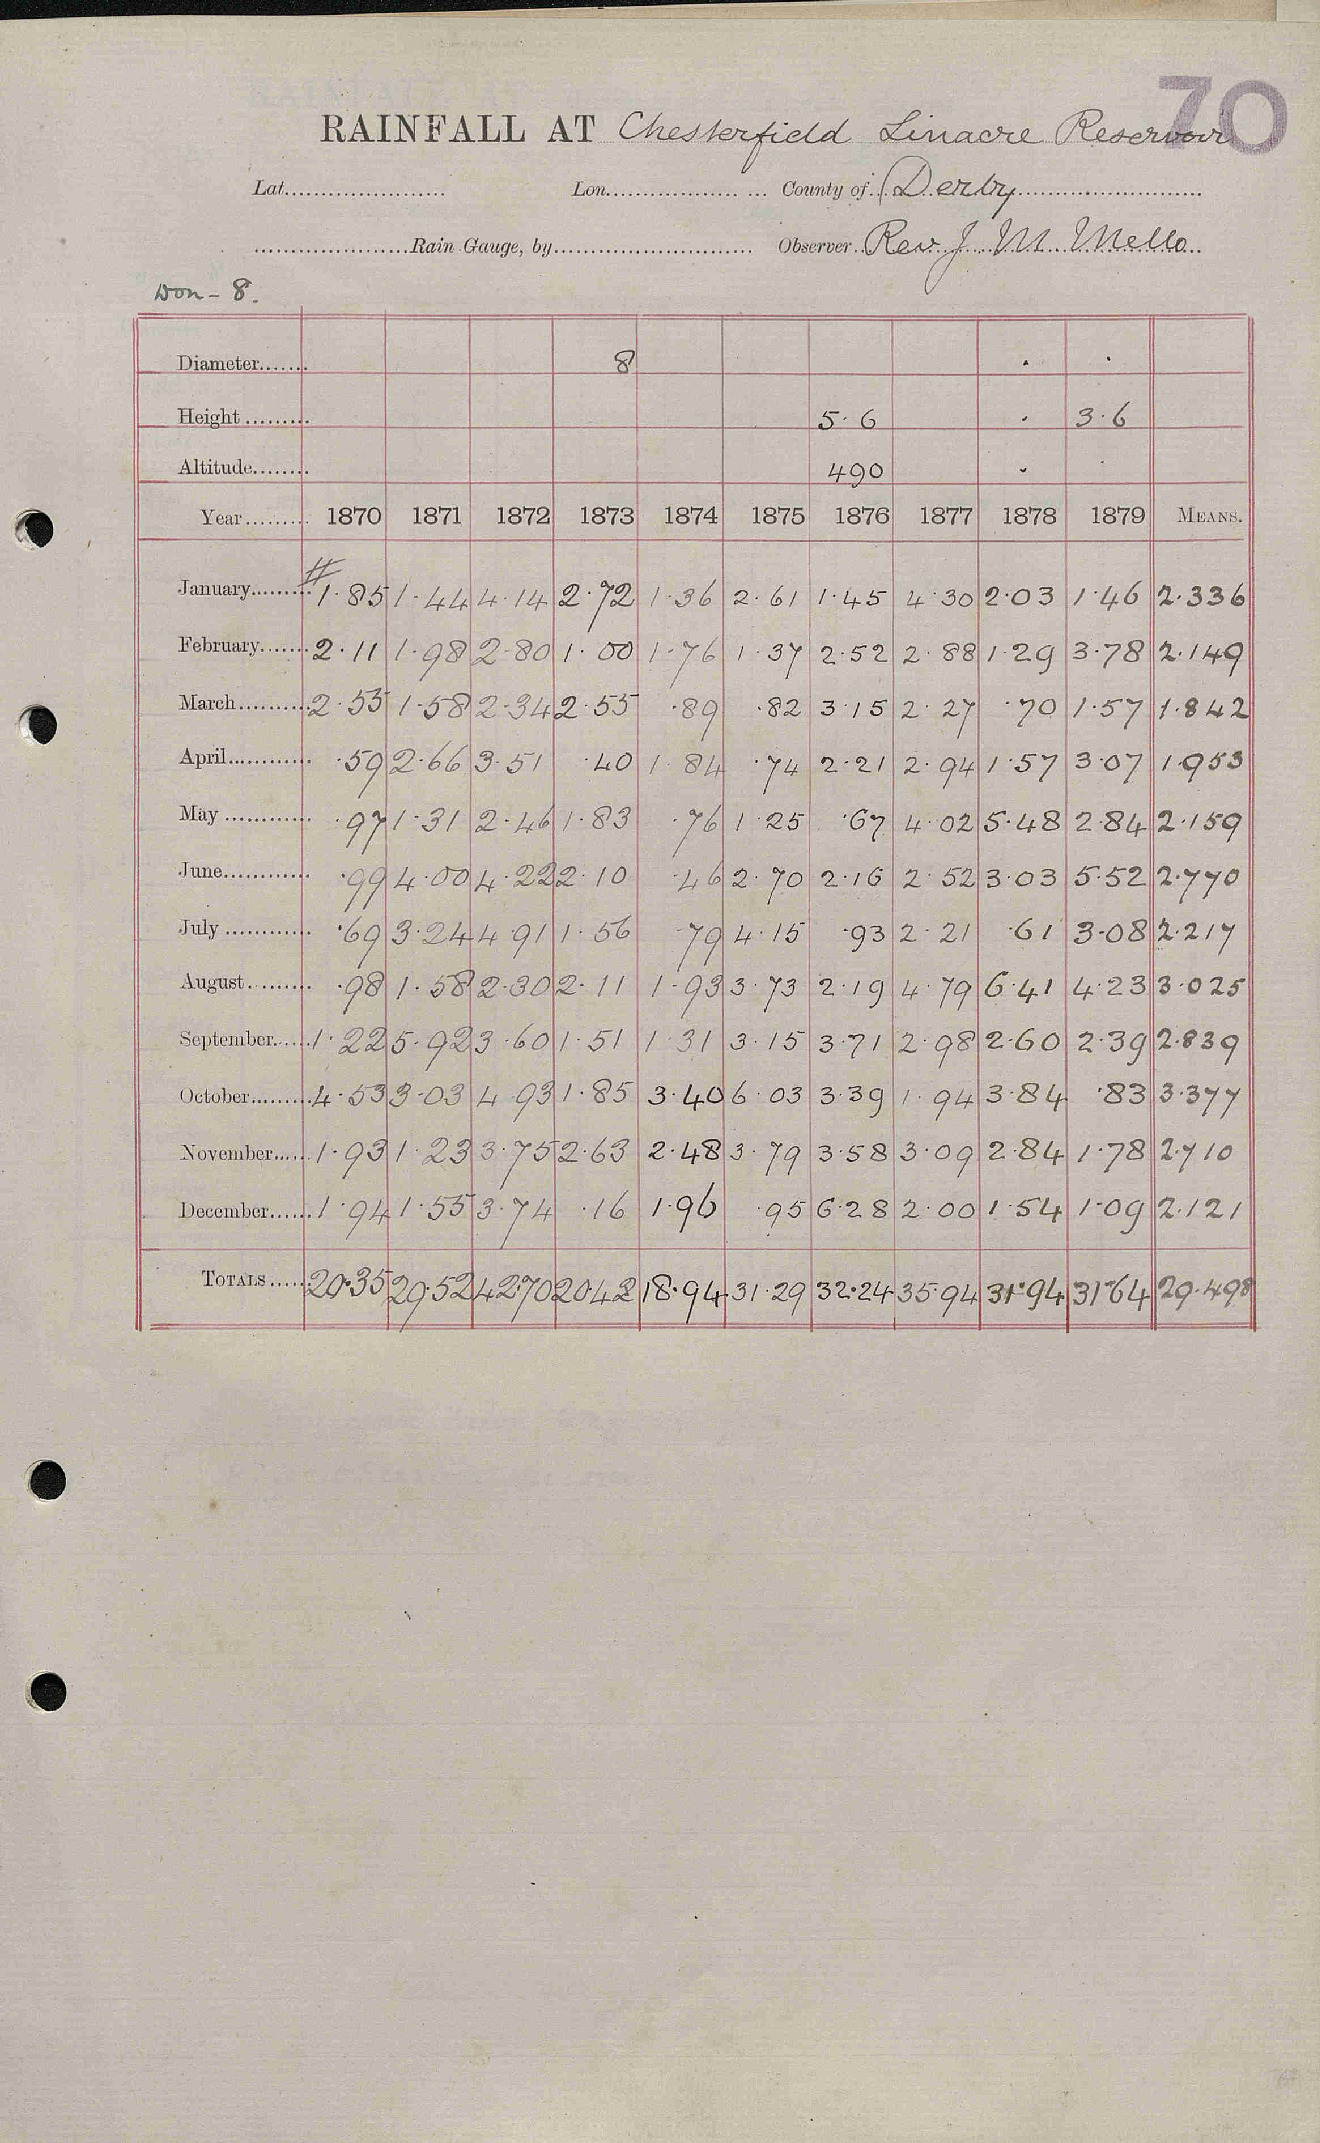 70
RAINFALL AT Chesterfield Linacre Reservoir
Lat. Lon. County of Derby
Rain Gauge, by Observer Rev J M Mello
Don - 8.
Diameter 8 . .
Height 5.6 . 3.6
Altitude 490 . .
Year 1870 1871 1872 1873 1874 1875 1876 1877 1878 1879 MEANS.
#
January 1.85 1.44 4.14 2.72 1.36 2.61 1.45 4.30 2.03 1.46 2.336
February 2.11 1.98 2.80 1.00 1.76 1.37 2.52 2.88 1.29 3.78 2.149
March 2.55 1.58 2.34 2.55 .89 .82 3.15 2.27 .70 1.57 1.842
April .59 2.66 3.51 .40 1.84 .74 2.21 2.94 1.57 3.07 1.953
May .97 1.31 2.46 1.83 .76 1.25 .67 4.02 5.48 2.84 2.159
June .99 4.00 4.22 2.10 .46 2.70 2.16 2.52 3.03 5.52 2.770
July .69 3.24 4.91 1.56 .79 4.15 .93 2.21 .61 3.08 2.217
August .98 1.58 2.30 2.11 1.93 3.73 2.19 4.79 6.41 4.23 3.025
September 1.22 5.92 3.60 1.51 1.31 3.15 3.71 2.98 2.60 2.39 2.839
October 4.53 3.03 4.93 1.85 3.40 6.03 3.39 1.94 3.84 .83 3.377
November 1.93 1.23 3.75 2.63 2.48 3.79 3.58 3.09 2.84 1.78 2.710
December 1.94 1.55 3.74 .16 1.96 .95 6.28 2.00 1.54 1.09 2.121
TOTALS 20.35 29.52 42.70 20.42 18.94 31.29 32.24 35.94 31.94 31.64 29.498